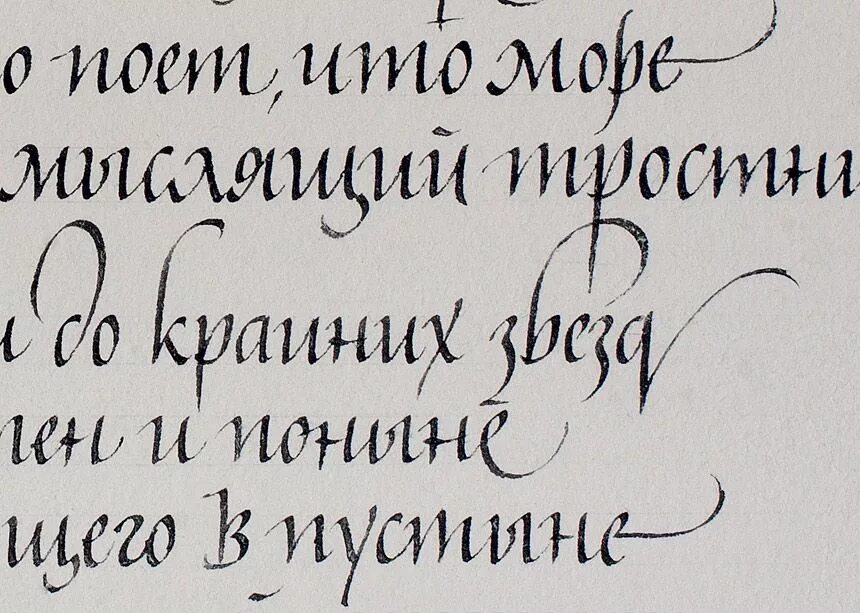 о поет, что море
мыслящий тростни
и до крайних звезд
ен и поныне
щего в пустыне